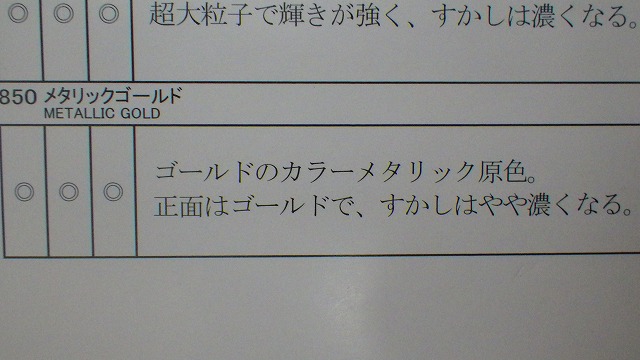 ◎ ◎ ◎ 超大粒子で輝きが強く、すかしは濃くなる。
850 メタリックゴールド
METALLIC GOLD
ゴールドのカラーメタリック原色。
◎ ◎ ◎ 正面はゴールドで、すかしはやや濃くなる。